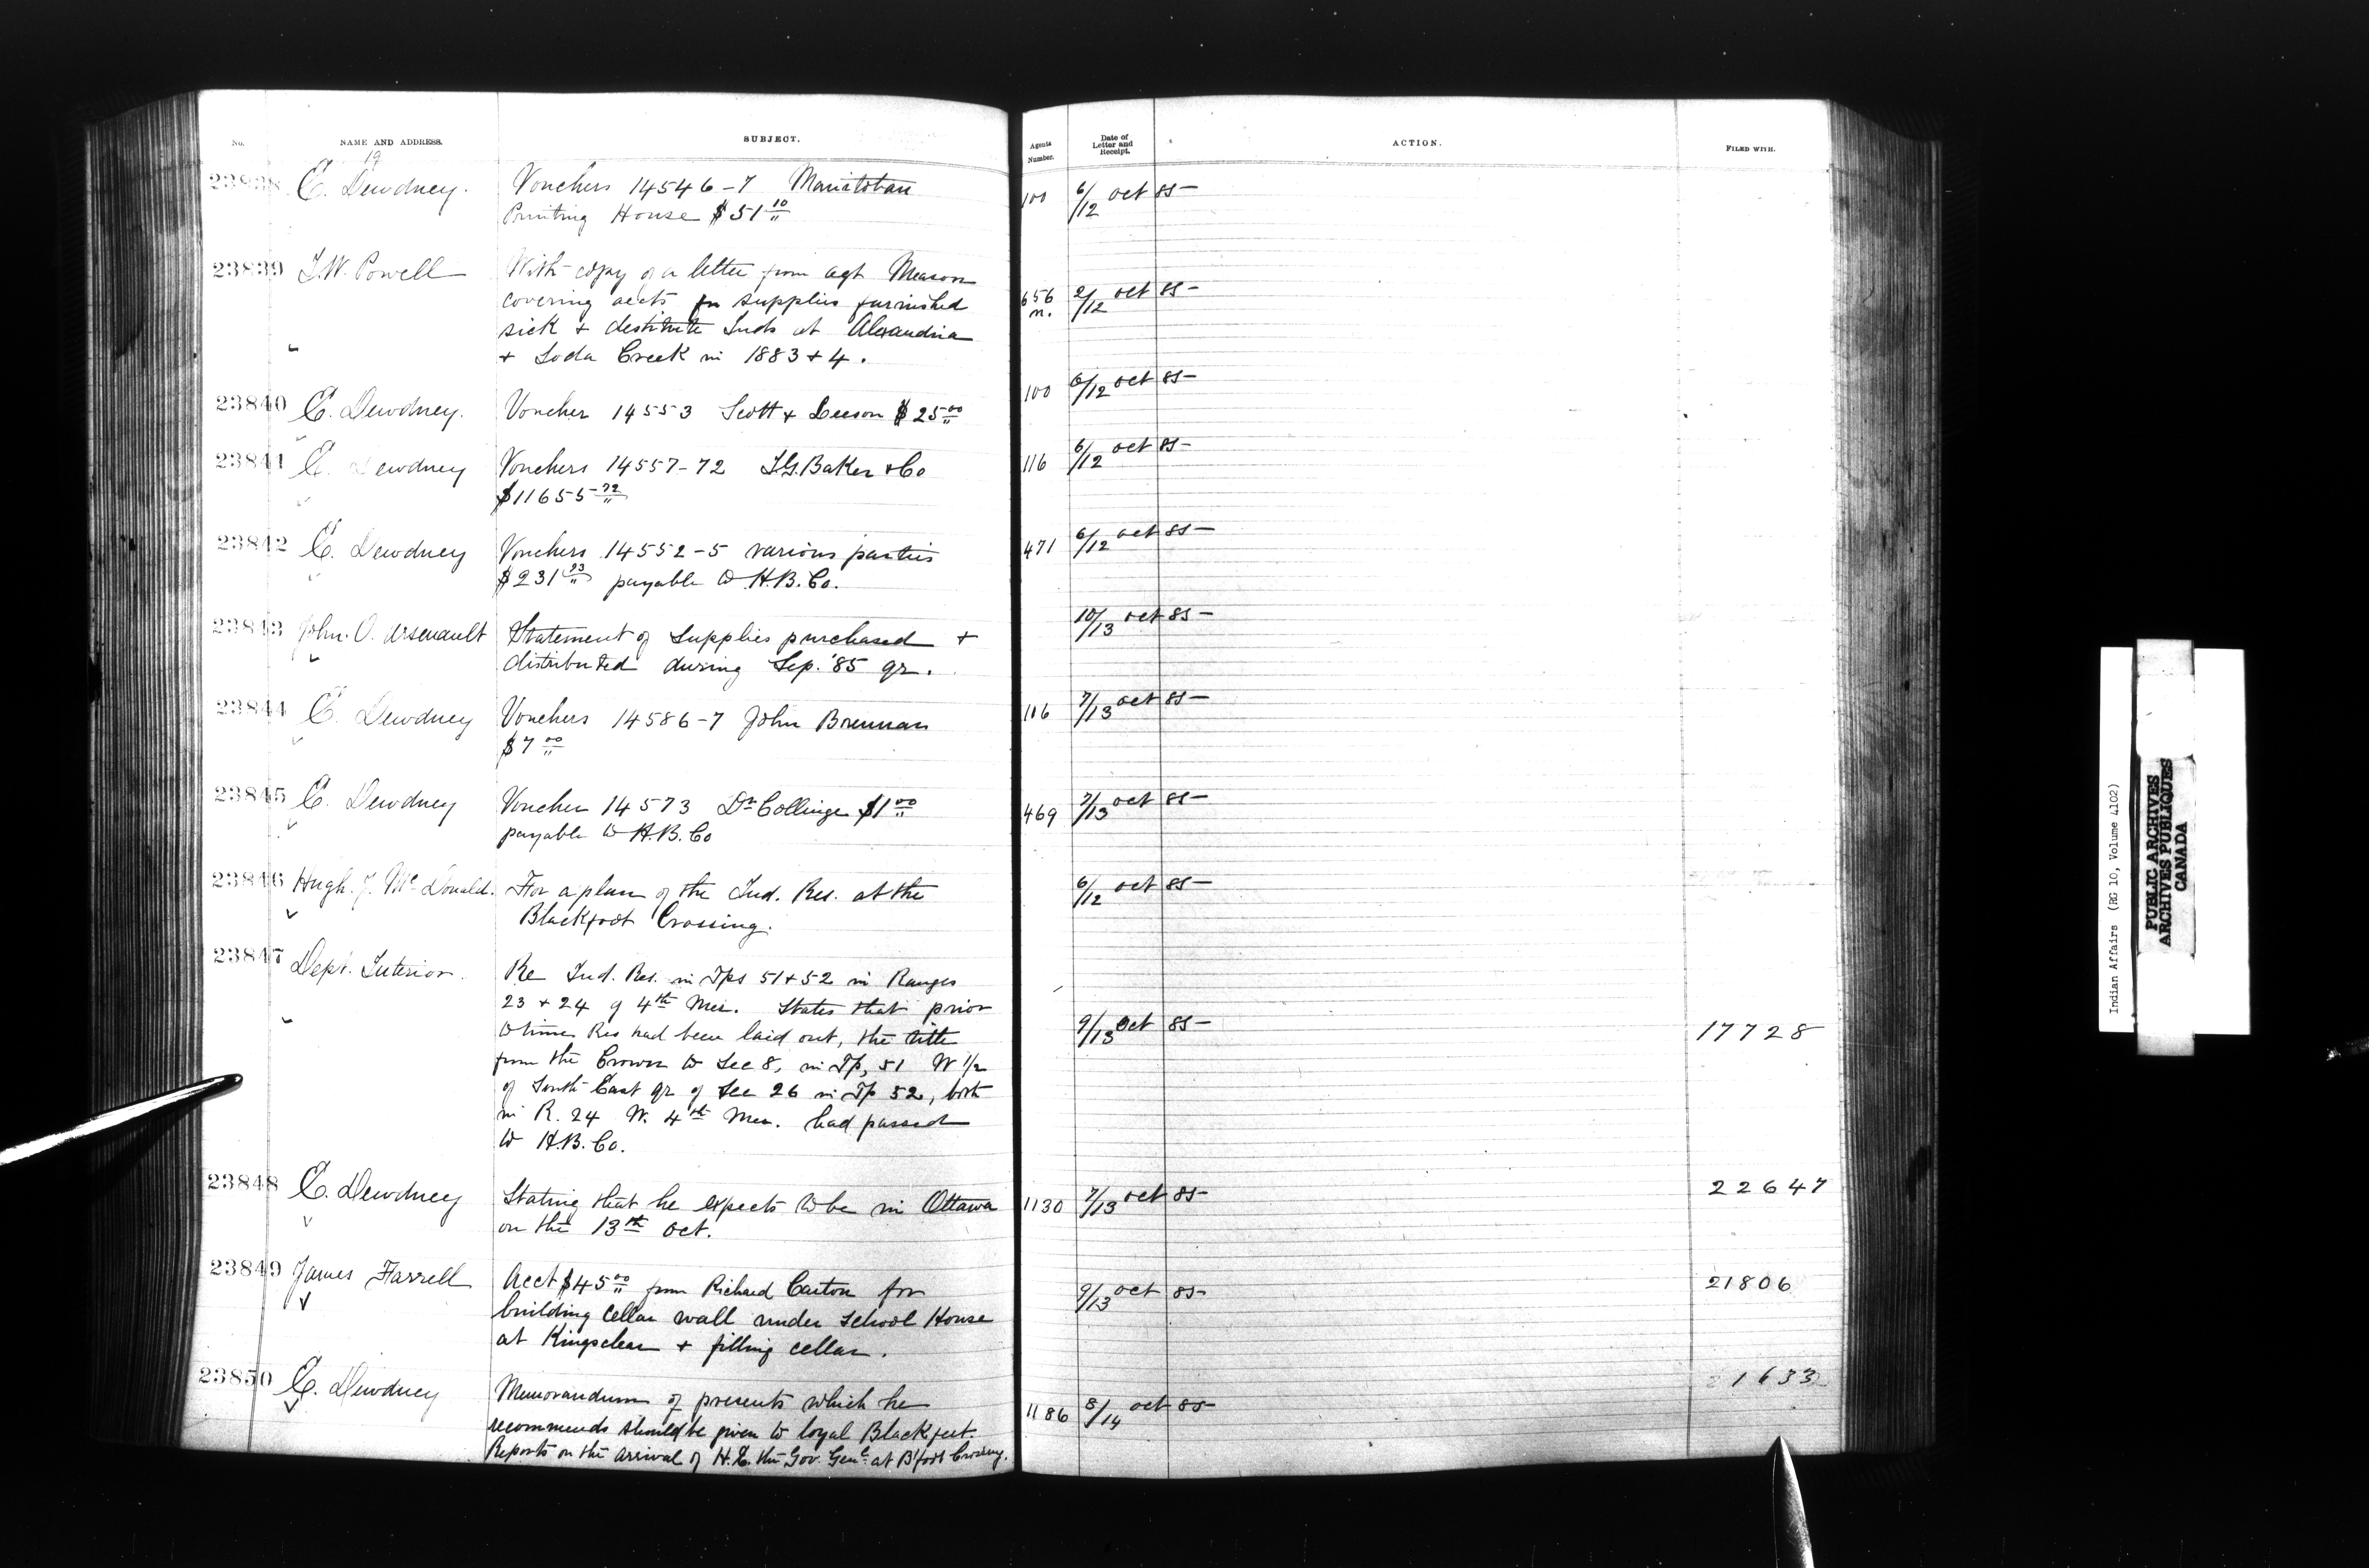 No.
NAME AND ADDRESS.
SUBJECT.
Agents Number.
Date of Letter and Receipt.
ACTION.
FILED WITH.
19
23838 E. Dewdney. Vouchers 14546-7 Manitoban 100 6/12 Oct 85
Printing House $51 10/"
23839 I.W. Powell With copy of a letter from agt Meason
covering accts for supplies furnished 656 2/12 Oct 85
sick + destitute Inds at Alexandria m.
+ Soda Creek in 1883+4.
23840 E. Dewdney. Voucher 14553 Scott + Leeson $25 00/" 100 6/12 Oct 85
23841 E. Dewdney Vouchers 14557-72 I.G. Baker + Co 116 6/12 Oct 85
$11655 72/"
23842 E. Dewdney Vouchers 14552-5 various parties 471 6/12 Oct 85
$231 23/" payable to H.B. Co.
23843 John. O. Arsenault Statement of Supplies purchased + 10/13 Oct 85
distributed during Sep. '85 qr.
23844 E. Dewdney Vouchers 14586-7 John Brennan 116 7/13 Oct 85
$7 00/"
23845 E. Dewdney Voucher 14573 Dr Collinge $1 00/" 469 7/13 Oct 85
payable to H.B. Co
23846 Hugh. J. McDonald. For a plan of the Ind. Res. at the 6/12 Oct 85
Blackfoot Crossing.
23847 Dept. Interior. Re Ind. Res. in Tps 51+52 in Ranges
23 + 24 of 4th Mer. States that prior
to time Res had been laid out, the title 9/13 Oct 85 17728
from the Crown to Sec 8, in Tp, 51 W 1/2
of South East qr of Sec 26 in Tp 52, both
in R. 24 W. 4th Mer. had passed
to H.B. Co.
23848 E. Dewdney Stating that he expects to be in Ottawa 1130 7/13 Oct 85 22647
on the 13th Oct.
23849 James Farrell Acct $45 00/" from Richard Carton for 9/13 Oct 85 21806
building cellar wall under School House
at Kingsclear + filling cellar.
23850 E. Dewdney Memorandum of presents which he 1186 8/14 Oct 85 1633
recommends should be given to loyal Blackfeet.
Reports on the arrival of H.E. the Gov. Genl. at B'foot Crossing.
Indian Affairs (RG 10, Volume 4102)
PUBLIC ARCHIVES
ARCHIVES PUBLIQUES
CANADA